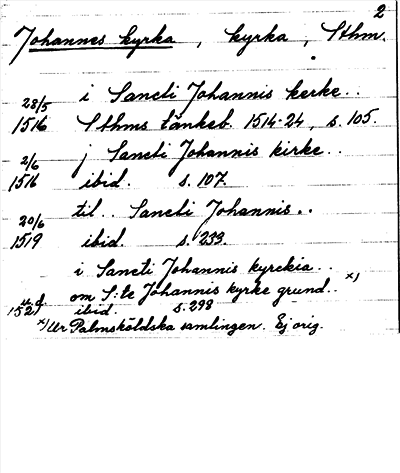 2
Johannes kyrka, kyrka, Sthm.
28/5 i Sancti Johannis kerke..
1516 Sthms tänkeb. 1514-24, s. 105.
2/6 j Sancti Johannis kirke..
1516 ibid. s. 107.
20/6 til.. Sancti Johannis..
1519 ibid. s. 233.
i Sancti Johannis kyrckia..
u.d. om S:te Johannis kyrke grund.. x)
1521 ibid. s. 298
x) Ur Palmsköldska samlingen. Ej orig.